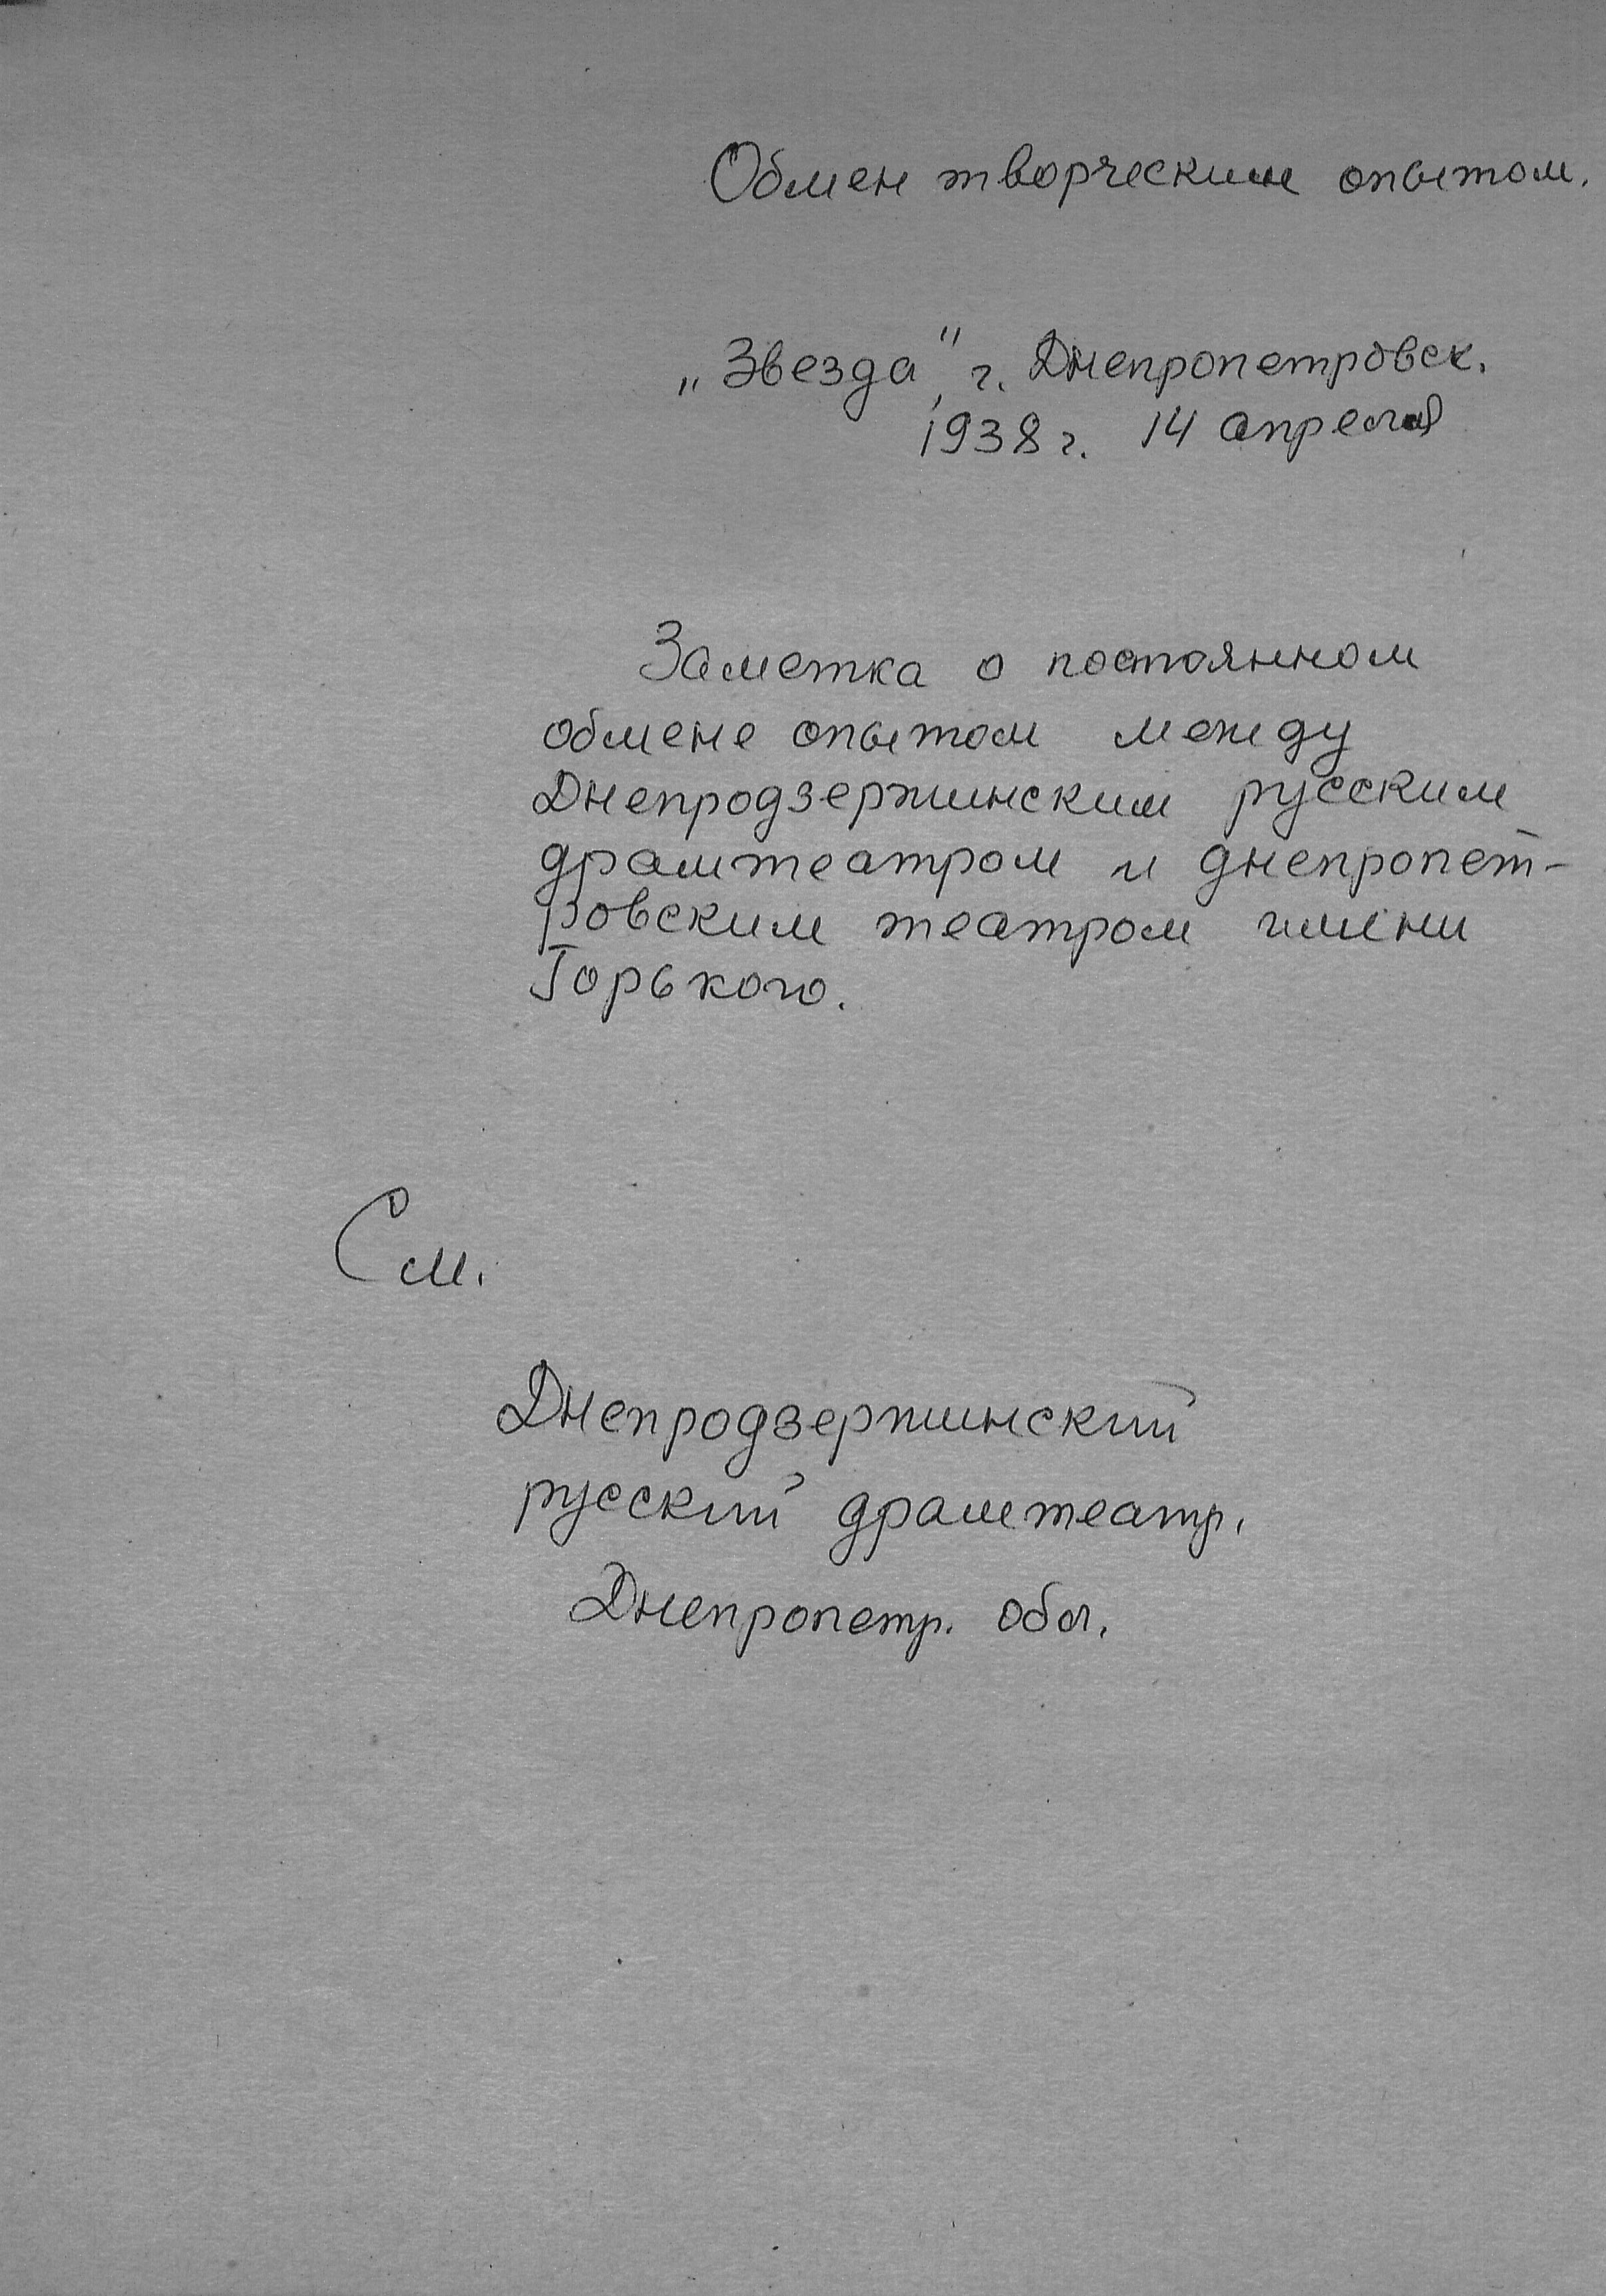 Обмен творческим опытом.
„Звезда", г. Днепропетровск.
1938 г. 14 апреля
Заметка о постоянном
обмене опытом между
Днепродзержинским русским
драмтеатром и днепропет-
ровским театром имени
Горького.
См.
Днепродзержинский
русский драмтеатр.
Днепропетр. обл.